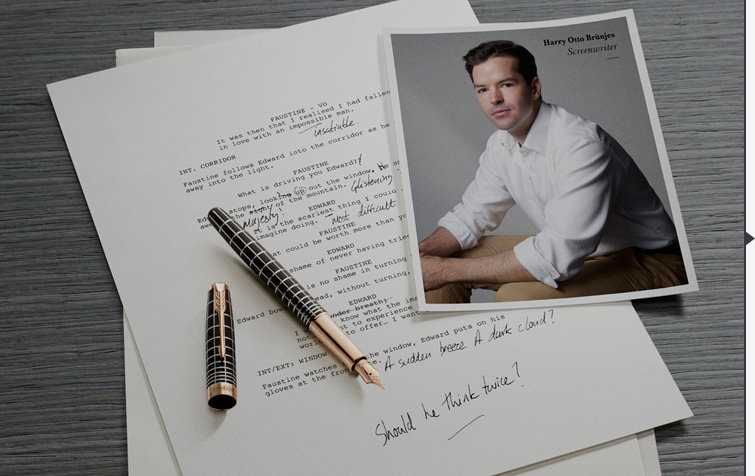 Harry Otto Brünjes
Screenwriter
FAUSTINE - VO
It was then that I realised I had fallen
in love with an impossible man.
insatiable.
INT. CORRIDOR
Faustine follows Edward into the corridor as he
away into the light.
FAUSTINE
What is driving you Edward?
stops, looking up out the window.
of the mountain. Glistening
majesty!
EDWARD
is the scariest thing I could
imagine doing. most difficult
FAUSTINE
at could be worth more than yo
EDWARD
shame of never having tried
FAUSTINE
is no shame in turning
Edward bow ead, without turning,
EDWARD
under breath
know what the
t to experience
to offer. I want
INT/EXT: WINDOW
Faustine watches the window, Edward puts on his
gloves at the fron
A sudden breeze A dark cloud?
Should he think twice?